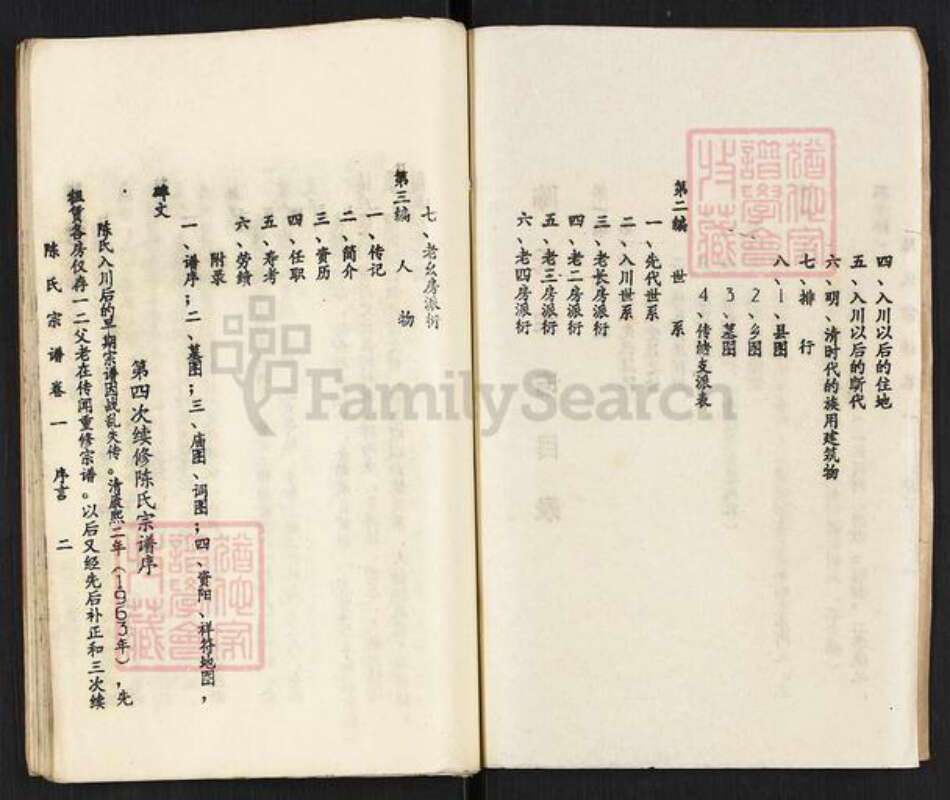 四、入川以后的住地
五、入川以后的断代
六、明、清时代的族用建筑物
七、排行
八、1、县图
2、乡图
3、墓图
4、传绪支派表
第二编 世系
一、先代世系
二、入川世系
三、老长房派衍
四、老二房派衍
五、老三房派衍
六、老四房派衍
七、老幺房派衍
第三编 人物
一、传记
二、简介
三、资历
四、任职
五、寿考
六、劳绩
附录
一、谱序；二、墓图；三、庙图、词图；四、资阳、祥符地图，
碑文
第四次续修陈氏宗谱序
陈氏入川后的早期宗谱因战乱失传。清康熙二年（1963年），先
祖赁各房仅存一二父老在传闻重修宗谱。以后又经先后补正和三次续
陈氏宗谱卷一 序言 二
FamilySearch
谱学会
收藏
谱学会
收藏